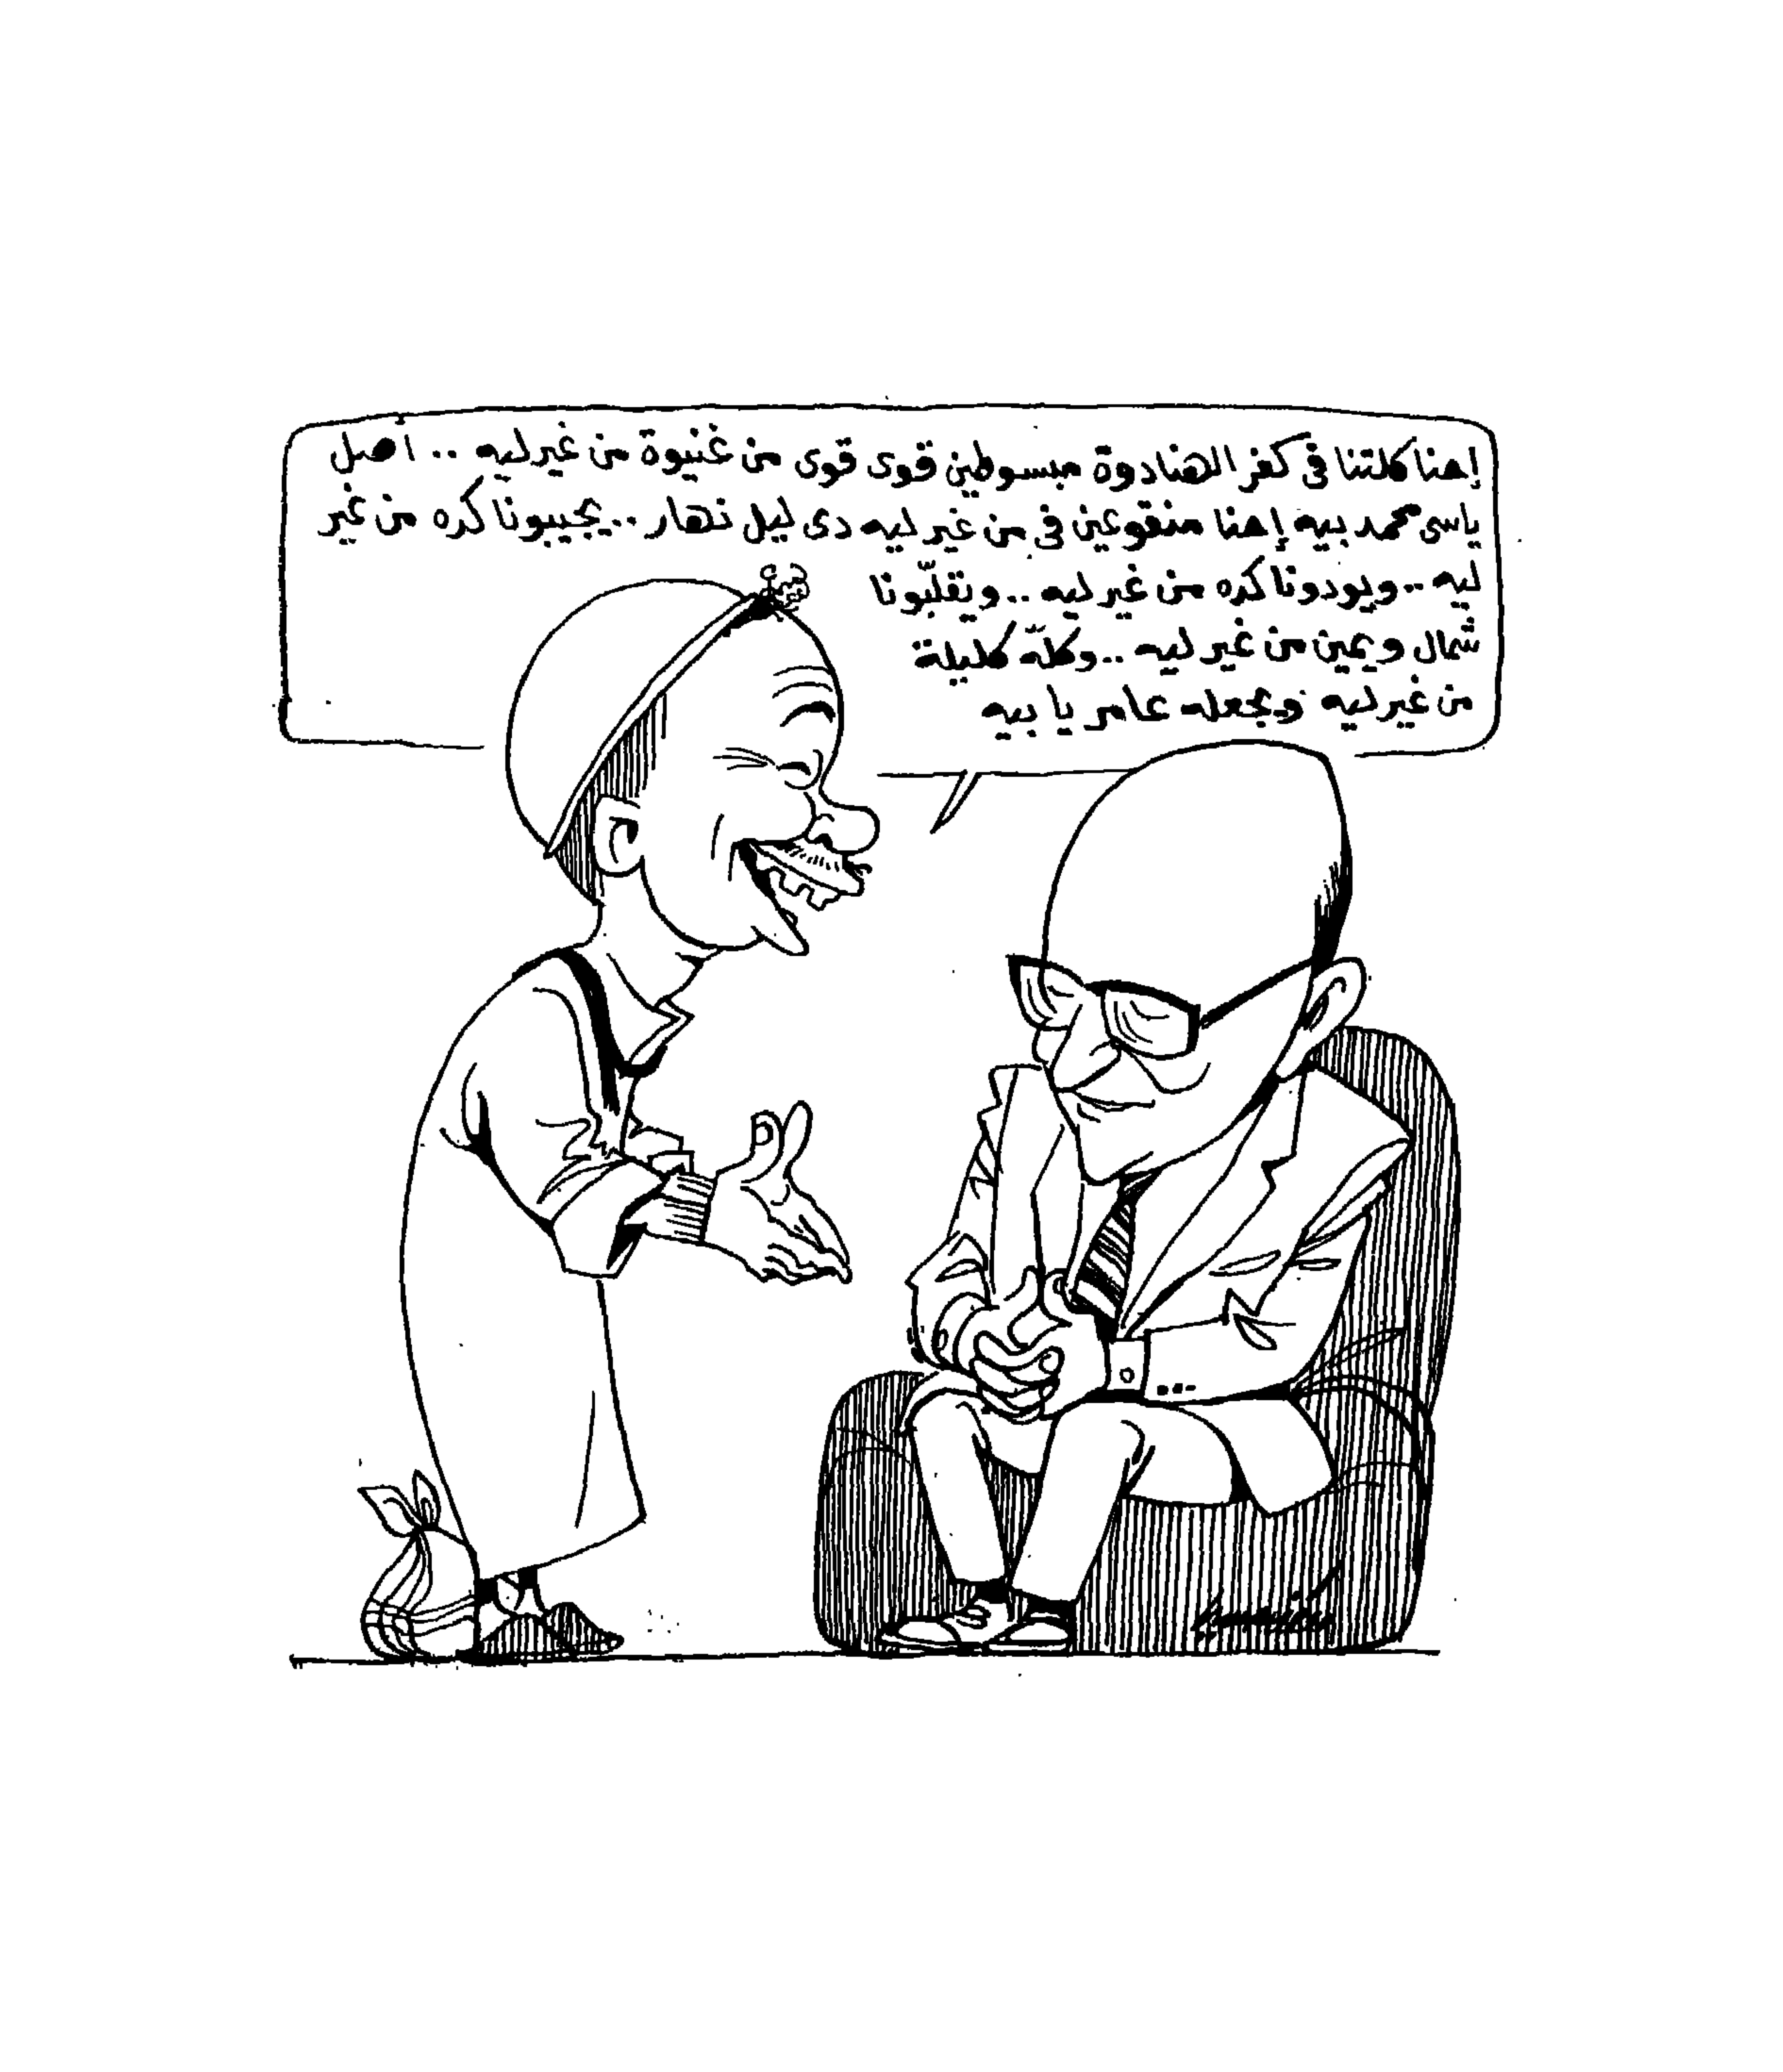 إحنا كلتنا فى كفر الهنادوة مبسوطين قوى قوى من غنيوة من غير ليه .. أصل
ياسى محمد بيه إحنا منقوعين فى من غير ليه دى ليل نهار .. يجيبونا كده من غير
ليه .. ويودونا كده من غير ليه .. ويقلّبونا
شمال ويمين من غير ليه .. وكلّه كليلة
من غير ليه ويجعله عامر يا بيه